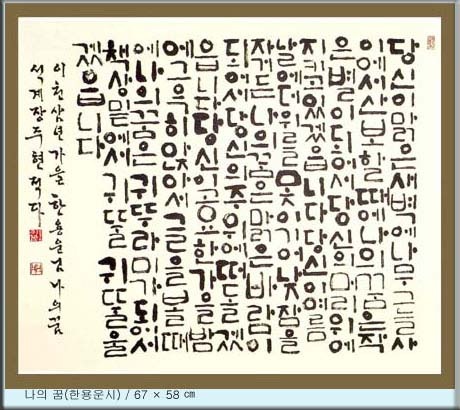 당신이맑은새벽에나무그늘사
이에서산보할때에나의꿈은작
은별이되어서당신의머리위에
지키고있겠읍니다당신이여름
날에더위를못이기어낮잠을
자거든나의꿈은맑은바람이
되어서당신의주위에떠돌겠
읍니다당신이고요한가을밤
에그윽히앉아서글을볼때
에나의꿈은귀뚜라미가되어서
책상밑에서귀똘귀똘울
겠읍니다
이천삼년 가을 한용운님 나의 꿈
석계 장주현 적다
나의 꿈(한용운시) / 67 × 58 ㎝